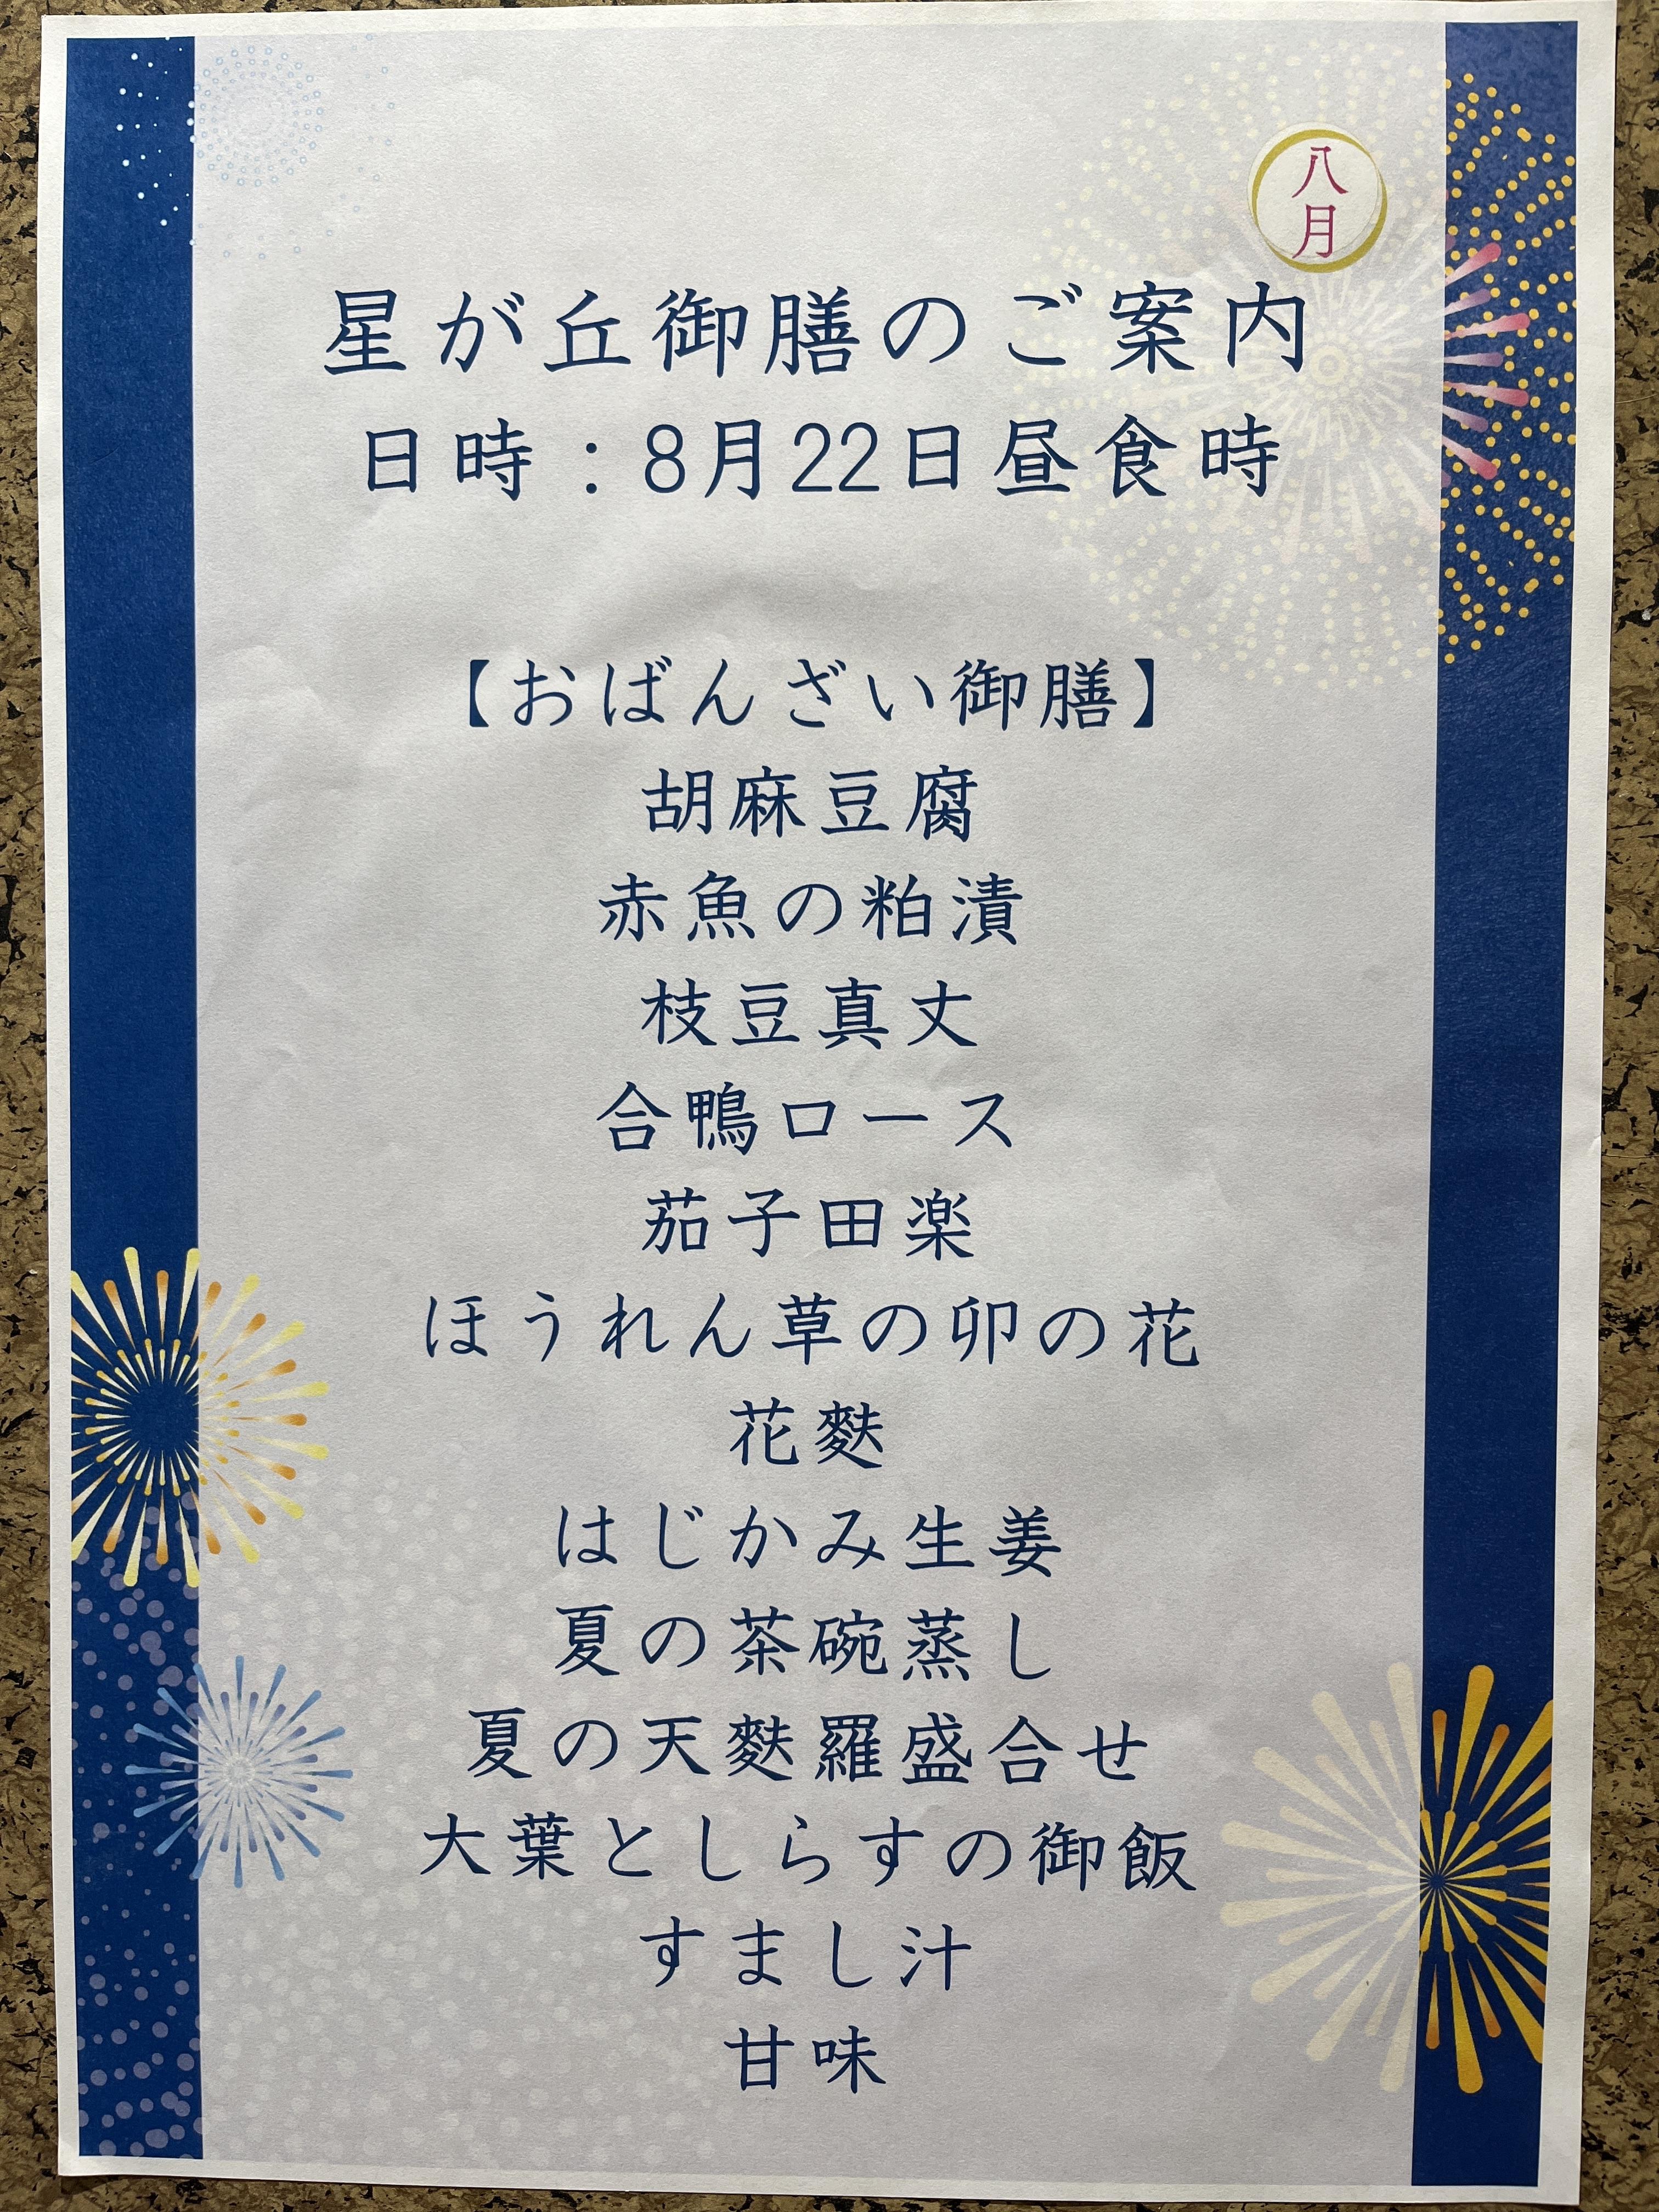 八月
星が丘御膳のご案内
日時：8月22日昼食時
【おばんざい御膳】
胡麻豆腐
赤魚の粕漬
枝豆真丈
合鴨ロース
茄子田楽
ほうれん草の卯の花
花麩
はじかみ生姜
夏の茶碗蒸し
夏の天麩羅盛合せ
大葉としらすの御飯
すまし汁
甘味